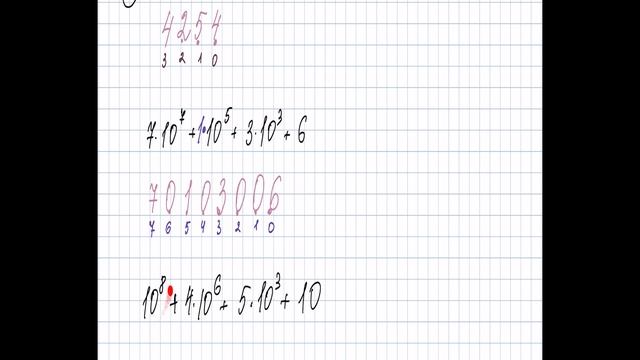 4254
3 2 1 0
7·10⁷+1·10⁵+3·10³+6
70103006
7 6 5 4 3 2 1 0
10⁸+4·10⁶+5·10³+10